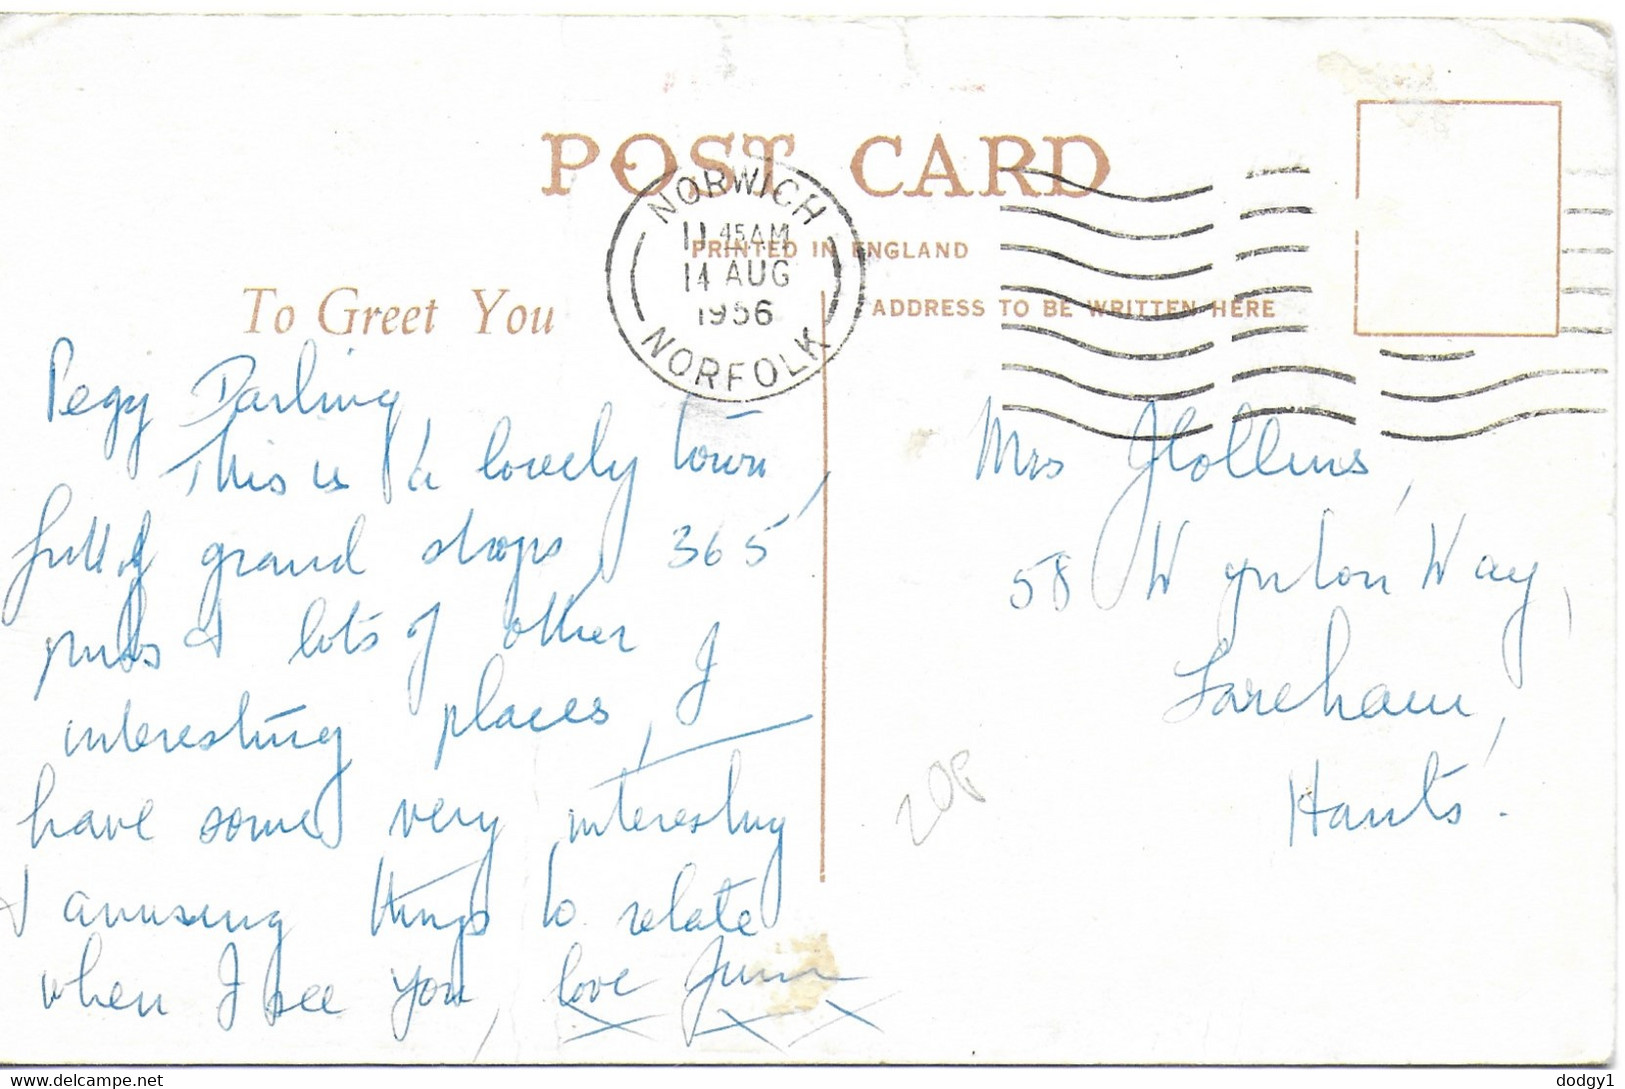 POST CARD
PRINTED IN ENGLAND
ADDRESS TO BE WRITTEN HERE
NORWICH
11 45 AM
14 AUG
1956
NORFOLK
To Greet You
Pegy Darling
This is a lovely town,
full of grand shops, 365
pubs & lots of other
interesting places, I
have some very interesting
& amusing things to relate
when I see you, love
X X X
Mrs Hollins,
58 Wynton Way,
Fareham,
Hants.
20P
dodgy1
delcampe.net